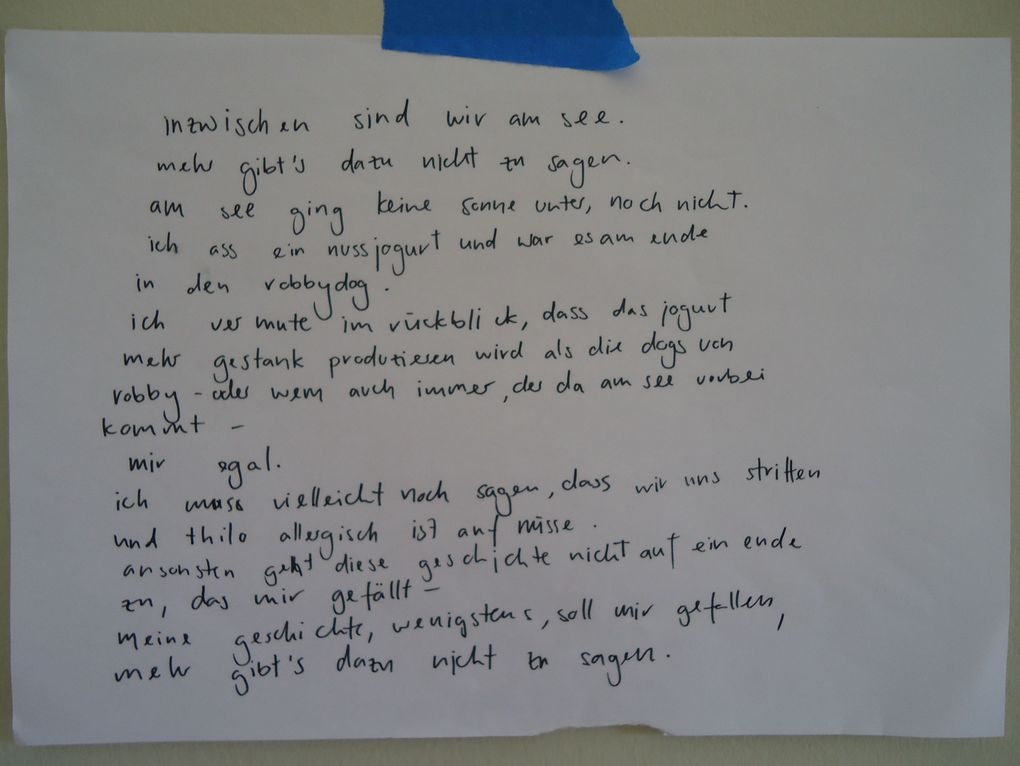 inzwischen sind wir am see.
mehr gibt's dazu nicht zu sagen.
am see ging keine sonne unter, noch nicht.
ich ass ein nussjogurt und war es am ende
in den robbydog.
ich vermute im rückblick, dass das jogurt
mehr gestank produzieren wird als die dogs von
robby - oder wem auch immer, der da am see vorbei
kommt -
mir egal.
ich muss vielleicht noch sagen, dass wir uns stritten
und thilo allergisch ist auf nüsse.
ansonsten geht diese geschichte nicht auf ein ende
zu, das mir gefällt -
meine geschichte, wenigstens, soll mir gefallen,
mehr gibt's dazu nicht zu sagen.